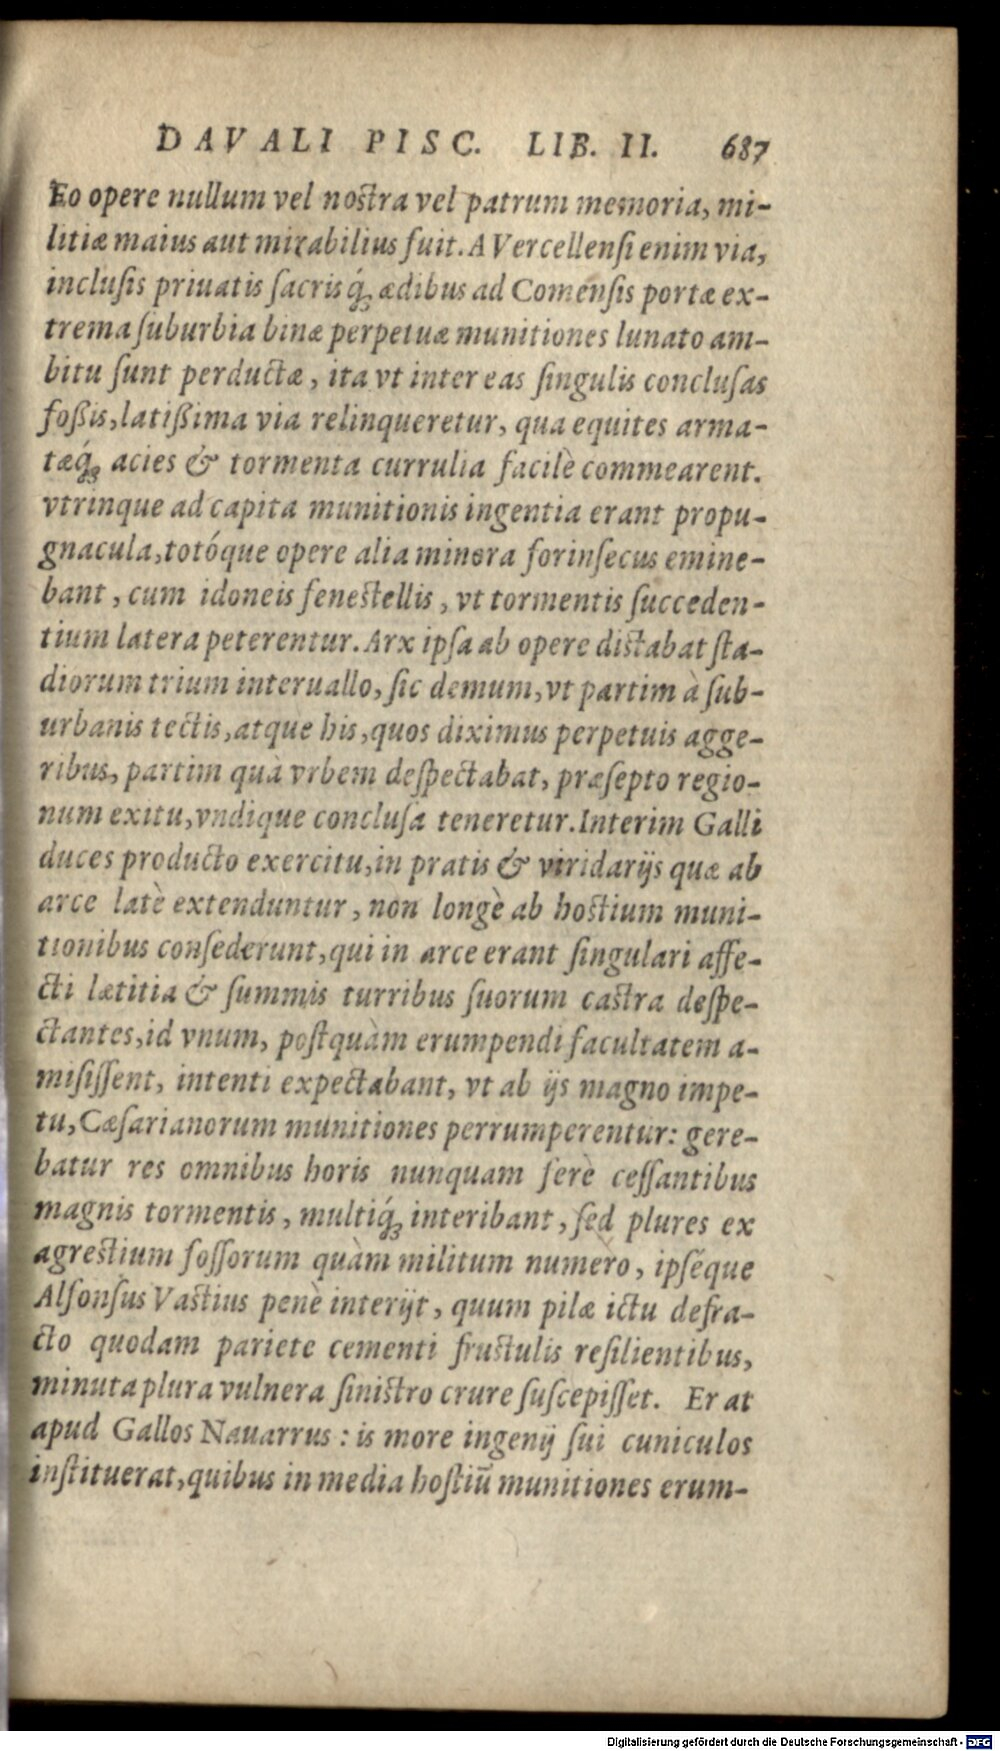 DAVALI PISC. LIB. II. 687
Eo opere nullum vel nostra vel patrum memoria, mi-
litiæ maius aut mirabilius fuit. A Vercellensi enim via,
inclusis priuatis sacrisq́; ædibus ad Comensis portæ ex-
trema suburbia binæ perpetuæ munitiones lunato am-
bitu sunt perductæ, ita vt inter eas singulis conclusas
foßis, latißima via relinqueretur, qua equites arma-
tæq́; acies & tormenta currulia facilè commearent.
vtrinque ad capita munitionis ingentia erant propu-
gnacula, totóque opere alia minora forinsecus emine-
bant, cum idoneis fenestellis, vt tormentis succeden-
tium latera peterentur. Arx ipsa ab opere distabat sta-
diorum trium interuallo, sic demum, vt partim à sub-
urbanis tectis, atque his, quos diximus perpetuis agge-
ribus, partim quà vrbem despectabat, præsepto regio-
num exitu, vndique conclusa teneretur. Interim Galli
duces producto exercitu, in pratis & viridarijs quæ ab
arce latè extenduntur, non longè ab hostium muni-
tionibus consederunt, qui in arce erant singulari affe-
cti lætitia & summis turribus suorum castra despe-
ctantes, id vnum, postquàm erumpendi facultatem a-
misissent, intenti expectabant, vt ab ijs magno impe-
tu, Cæsarianorum munitiones perrumperentur: gere-
batur res omnibus horis nunquam ferè cessantibus
magnis tormentis, multiq́; interibant, sed plures ex
agrestium fossorum quàm militum numero, ipséque
Alfonsus Vastius penè interijt, quum pilæ ictu defra-
cto quodam pariete cementi frustulis resilientibus,
minuta plura vulnera sinistro crure suscepisset. Er at
apud Gallos Nauarrus: is more ingenij sui cuniculos
instituerat, quibus in media hostiũ munitiones erum-
Digitalisierung gefördert durch die Deutsche Forschungsgemeinschaft - DFG